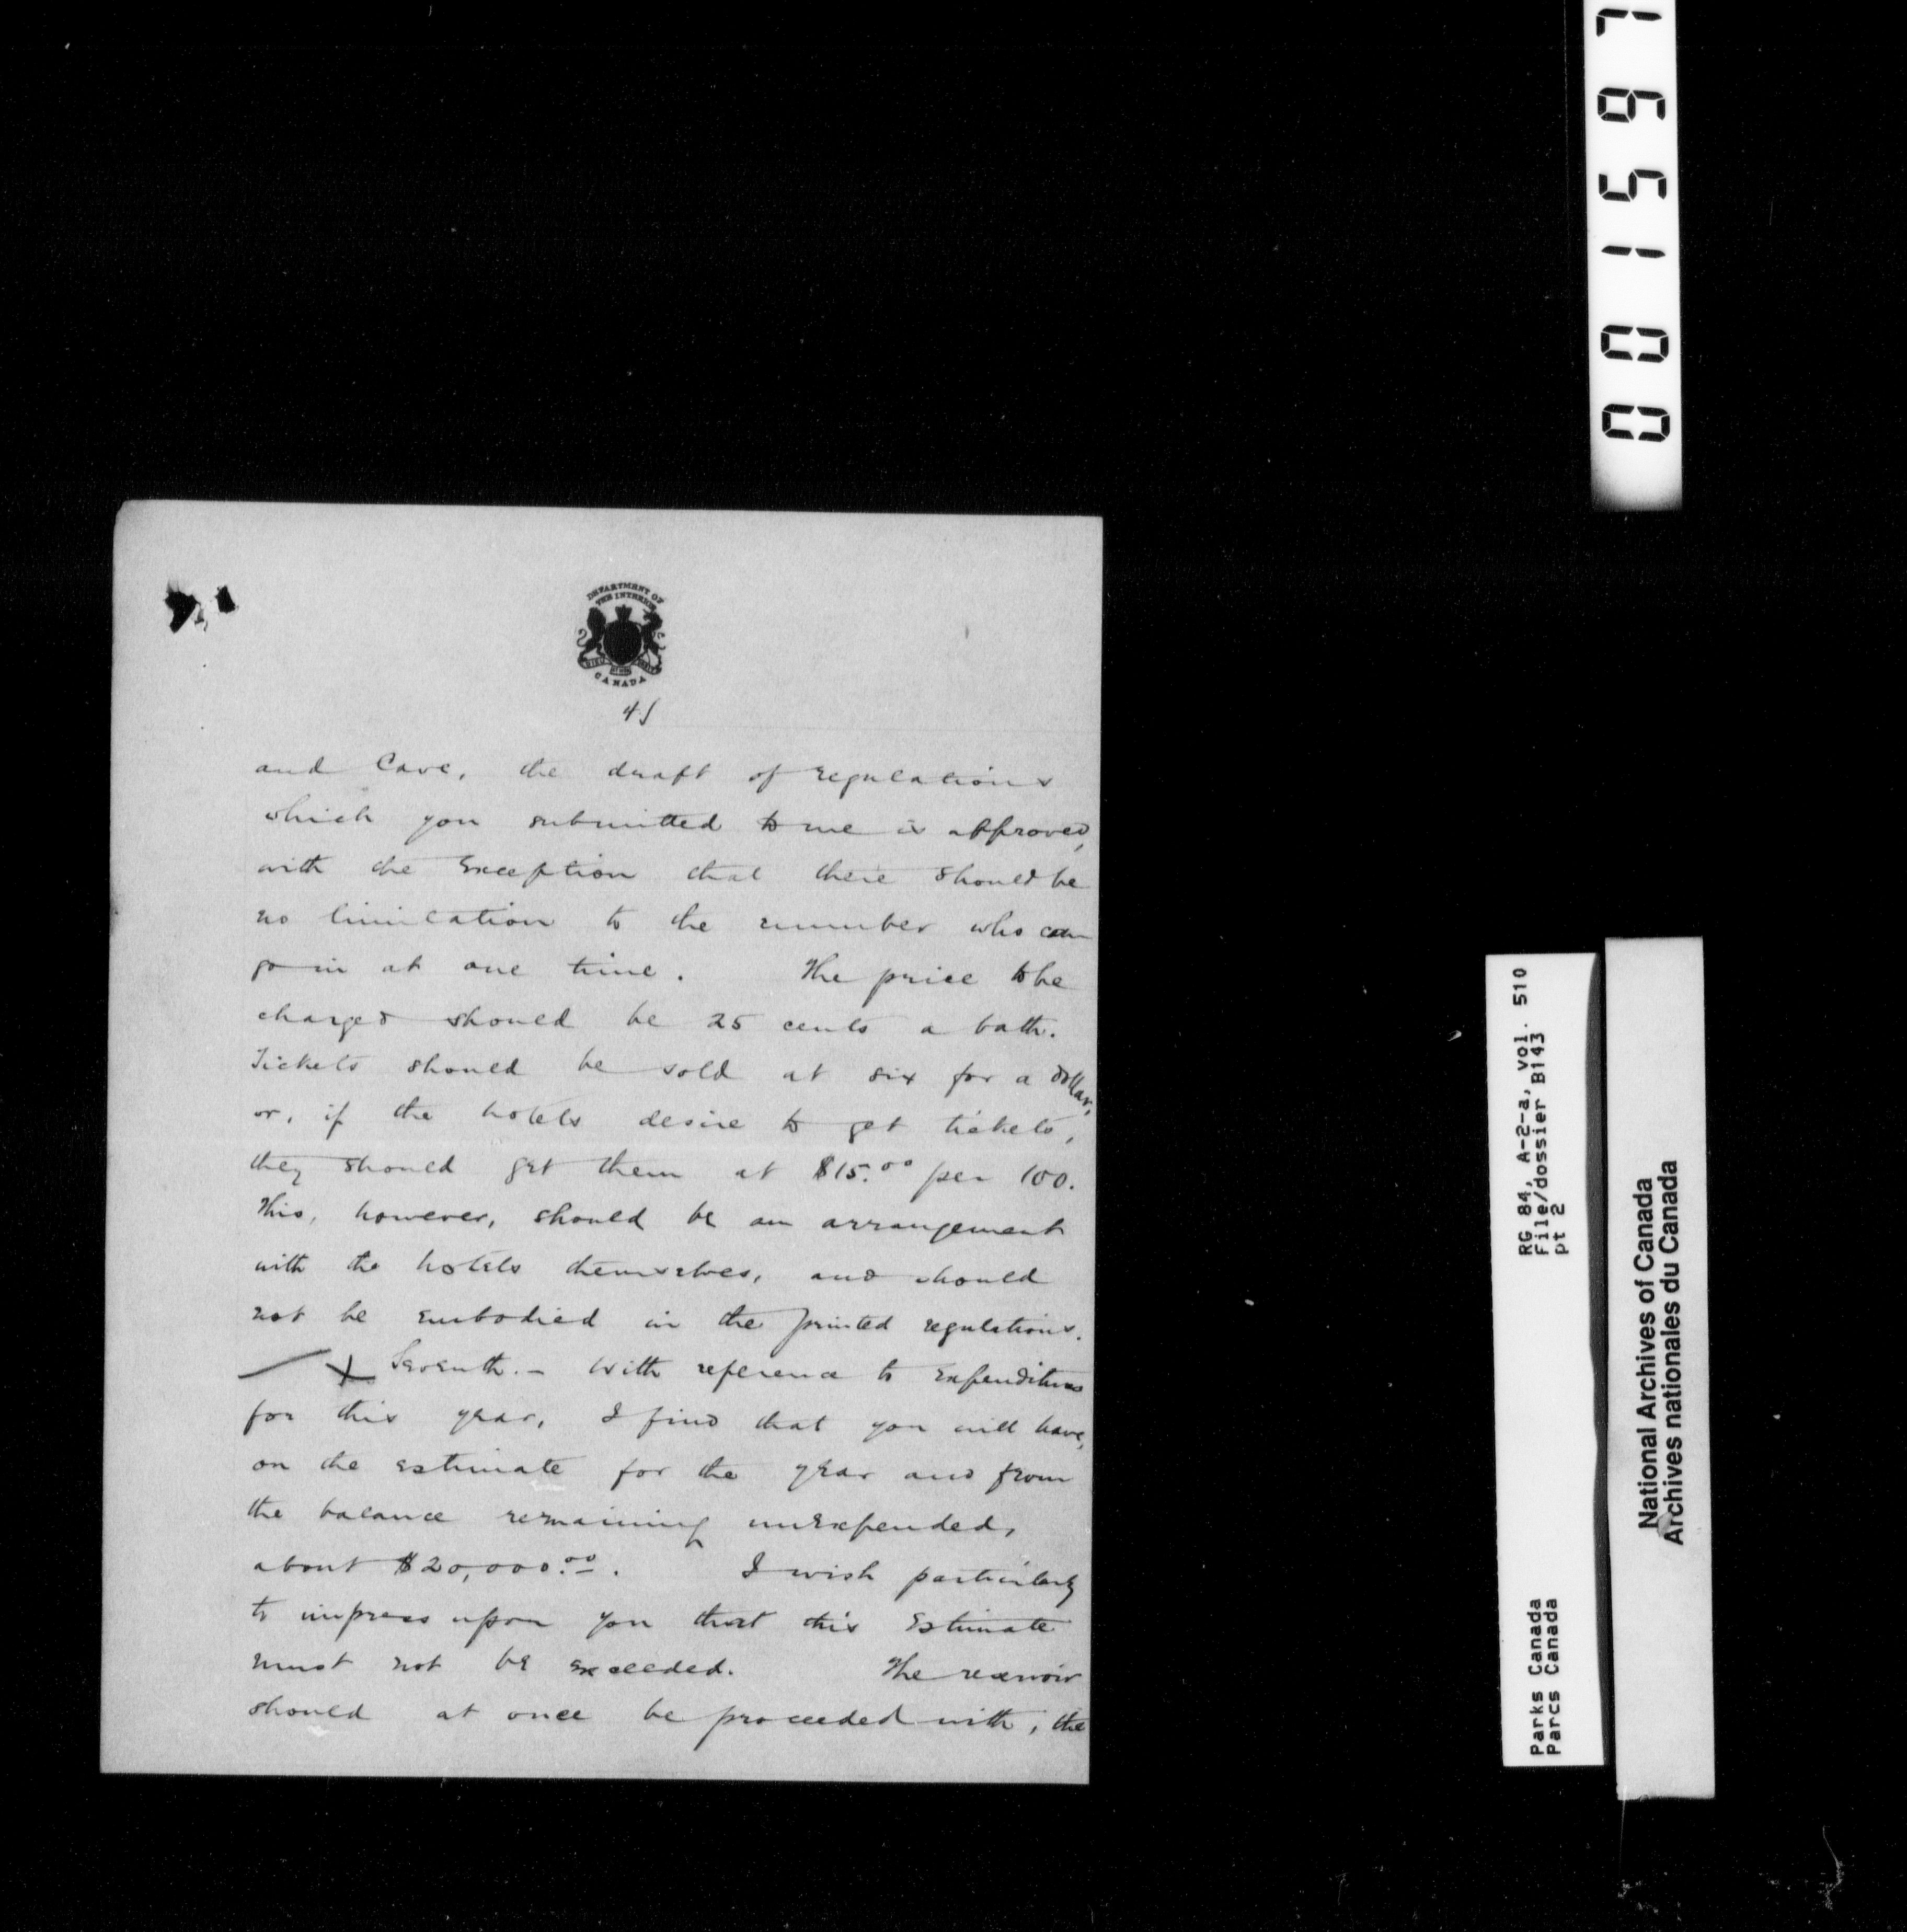 DEPARTMENT OF
THE INTERIOR
CANADA
4/
and Cave, the draft of regulations
which you submitted to me is approved,
with the exception that there should be
no limitation to the number who can
go in at one time. The price to be
charged should be 25 cents a bath.
Tickets should be sold at six for a dollar,
or, if the hotels desire to get tickets,
they should get them at $15.00 per 100.
This, however, should be an arrangement
with the hotels themselves, and should
not be embodied in the printed regulations.
Seventh. - With reference to expenditures
for this year, I find that you will have,
on the estimate for the year and from
the balance remaining unexpended,
about $20,000.00. I wish particularly
to impress upon you that this estimate
must not be exceeded. The reservoir
should at once be proceeded with, the
001597
RG 84, A-2-a, vol. 510
File/dossier B143
pt 2
Parks Canada
Parcs Canada
National Archives of Canada
Archives nationales du Canada